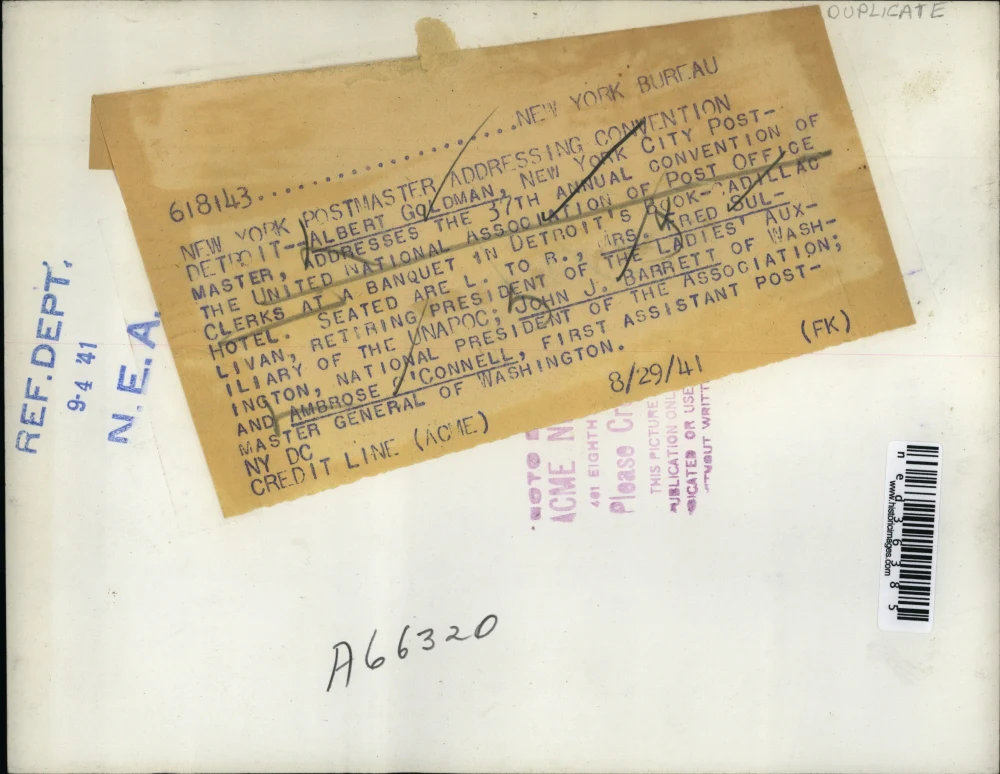 DUPLICATE
618143.......................NEW YORK BUREAU
NEW YORK POSTMASTER ADDRESSING CONVENTION
DETROIT--ALBERT GOLDMAN, NEW YORK CITY POST-
MASTER, ADDRESSES THE 37TH ANNUAL CONVENTION OF
THE UNITED NATIONAL ASSOCIATION OF POST OFFICE
CLERKS AT A BANQUET IN DETROIT'S BOOK-CADILLAC
HOTEL. SEATED ARE L. TO R., MRS. FRED SUL-
LIVAN, RETIRING PRESIDENT OF THE LADIEST AUX-
ILIARY OF THE UNAPOC; JOHN J. BARRETT OF WASH-
INGTON, NATIONAL PRESIDENT OF THE ASSOCIATION;
AND AMBROSE O'CONNELL, FIRST ASSISTANT POST-
MASTER GENERAL OF WASHINGTON.
NY DC
CREDIT LINE (ACME) 8/29/41 (FK)
REF. DEPT.
9-4 '41
N. E. A.
ACME N
461 EIGHTH
Please Cr
THIS PICTURE
PUBLICATION ONL
OR USE
WRITT
A66320
www.historicimages.com
ned36385